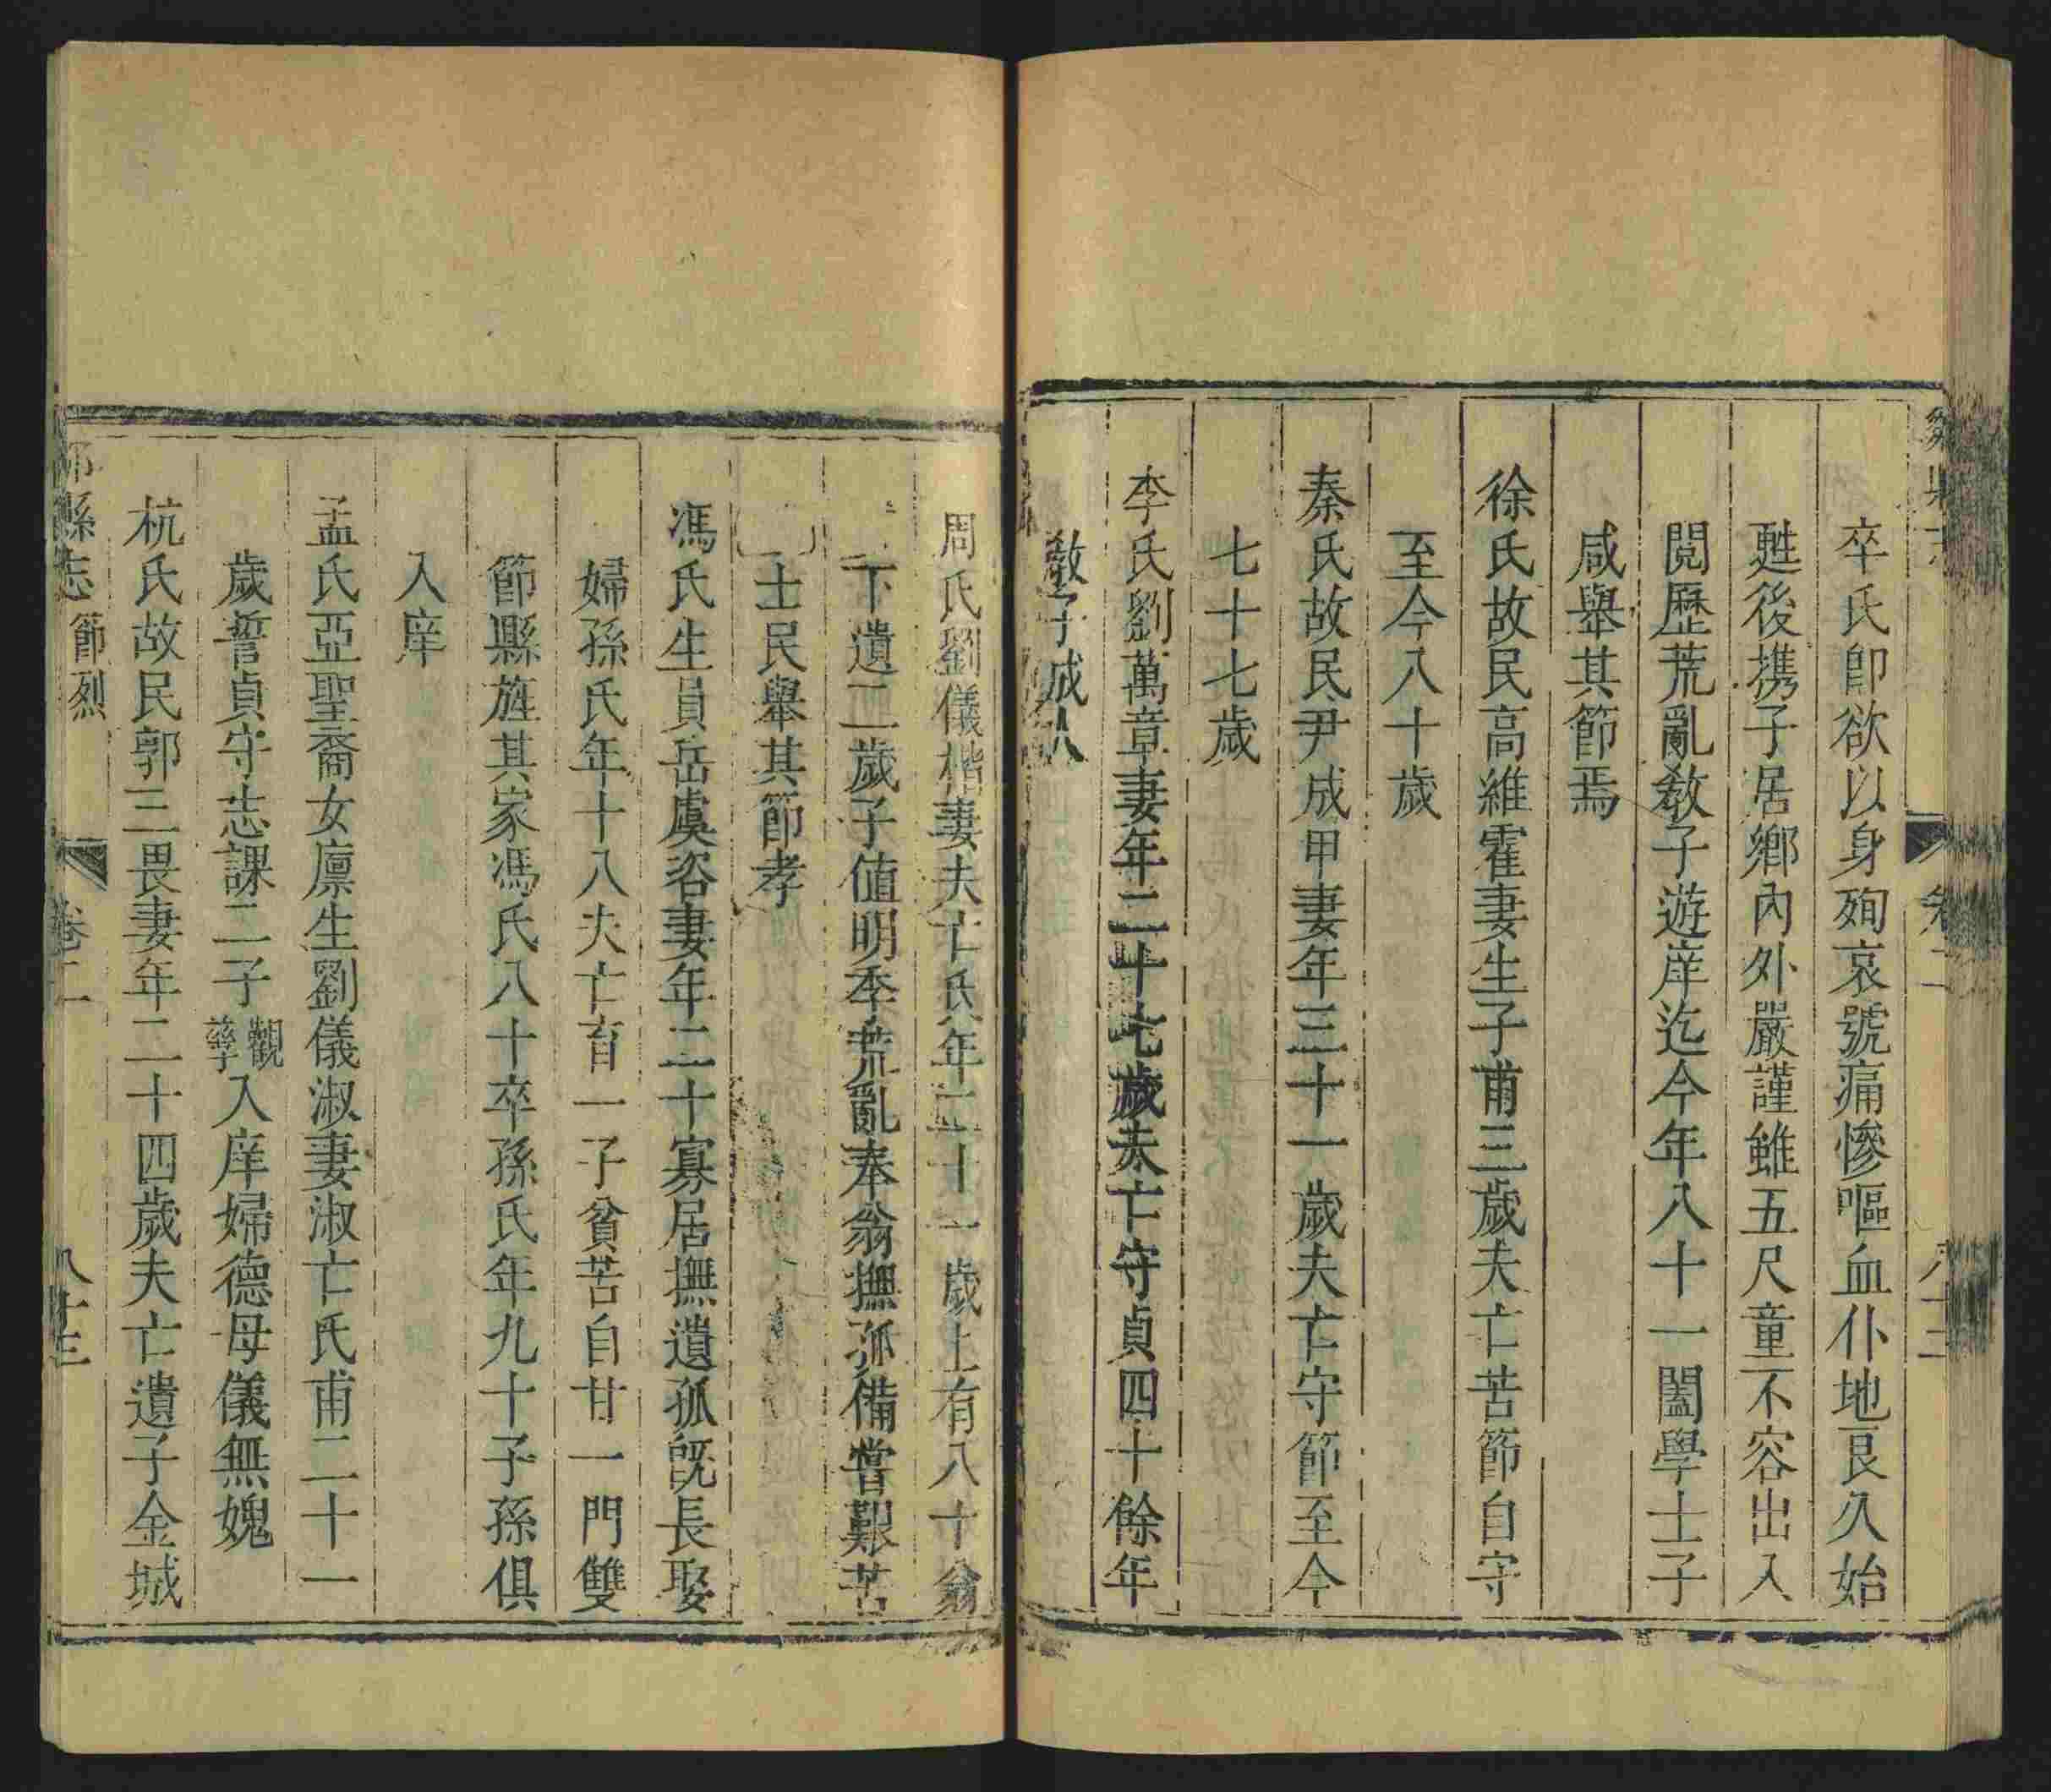 卒氏即欲以身殉哀號痛慘嘔血仆地良久始
甦後携子居鄉內外嚴謹雖五尺童不容出入
閱歷荒亂教子遊庠迄今年八十一闔學士子
咸舉其節焉
徐氏故民高維霍妻生子甫三歲夫亡苦節自守
至今八十歲
秦氏故民尹成甲妻年三十一歲夫亡守節至今
七十七歲
李氏劉萬章妻年二十七歲夫亡守貞四十餘年
教子成
周氏劉儀楷妻夫亡氏年二十一歲上有八十翁
下遺二歲子值明季荒亂奉翁撫孤備嘗艱苦
士民舉其節孝
馮氏生員岳虞咨妻年二十寡居撫遺孤旣長娶
婦孫氏年十八夫亡育一子貧苦自甘一門雙
節縣旌其家馮氏八十卒孫氏年九十子孫俱
入庠
孟氏亞聖裔女廩生劉儀淑妻淑亡氏甫二十一
歲誓貞守志課二子觀孳入庠婦德母儀無媿
杭氏故民郭三畏妻年二十四歲夫亡遺子金城
縣志 節烈 卷二 八十三